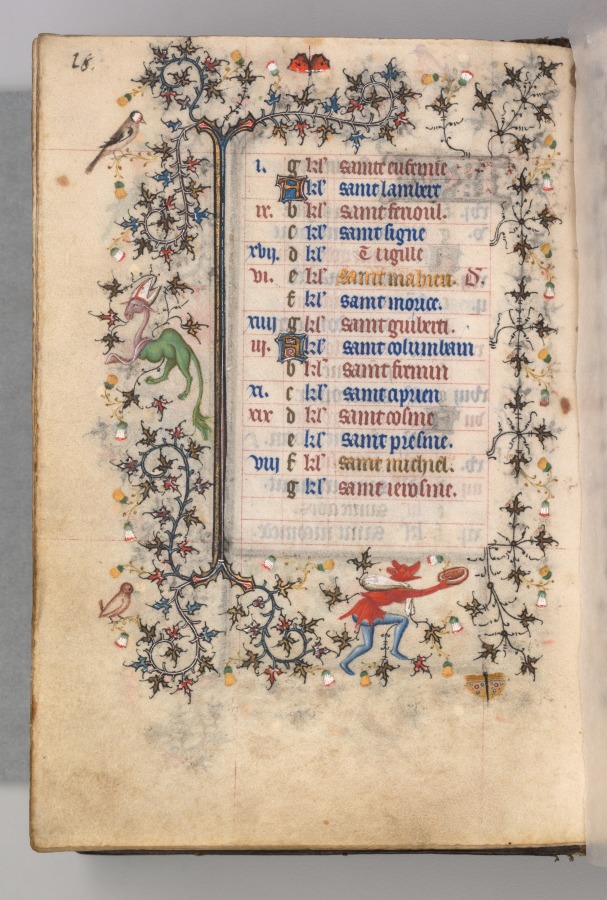 18.
i. g kl' saincte eufemie
A kl' saint lambert
ix. b kl' saint ferioul.
c kl' saint signe
xvij. d kl' vigille
vi. e kl' saint mahieu. S.
f kl' saint morice.
xiiij g kl' saint guilbert.
iij. A kl' saint columbain
b kl' saint firmin
xi. c kl' saint ciprien
xix d kl' saint cosme
e kl' saint presme.
viij f kl' saint michiel.
g kl' saint ierosme.